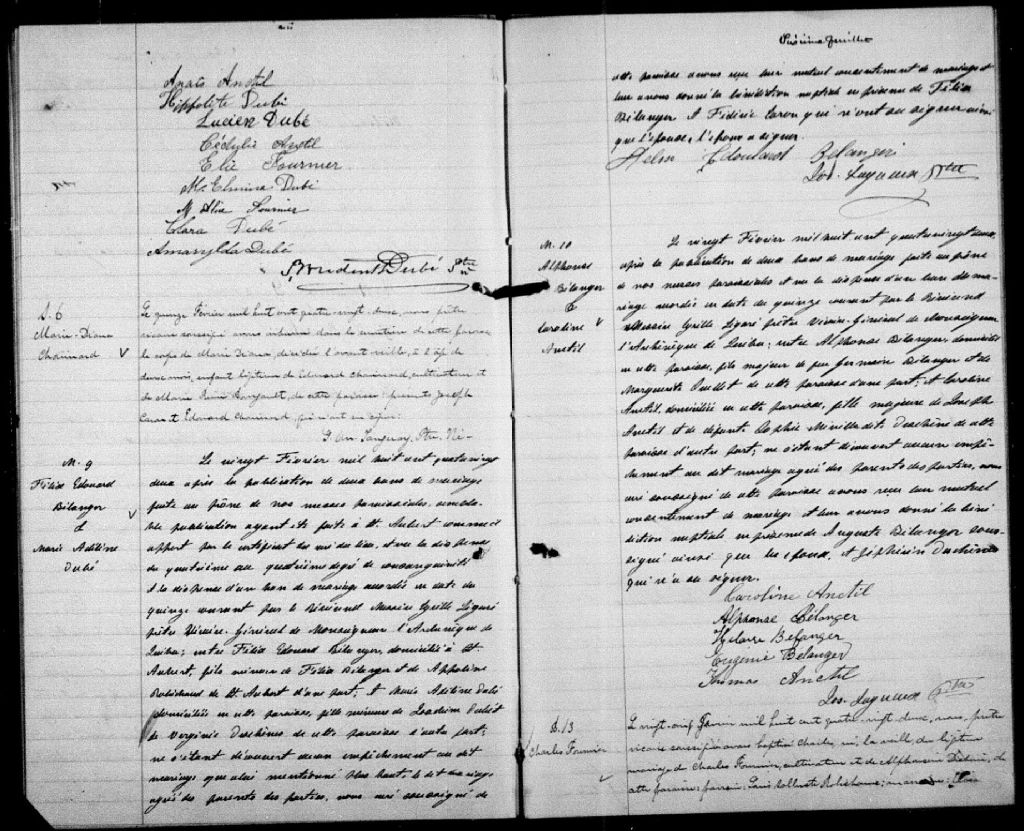 Anaïs Anctil
Hippolyte Dubé
Lucien Dubé
Anctil
Elie Fournier
M. Elmina Dubé
M. Alice Fournier
Clara Dubé
Amarylda Dubé
Prudent Dubé Ptre
S. 6
Marie-Diana
Chouinard
Le quinze Février mil huit cent quatre-vingt-douze, nous prêtre
vicaire soussigné avons inhumé dans le cimetière de cette paroisse
le corps de Marie Diana, décédée l'avant veille, à l'âge de
deux mois, enfant légitime de Edouard Chouinard, cultivateur et
de Marie de cette paroisse. Présents Joseph
Caron et Edouard Chouinard, qui n'ont su signer.
Tanguay, Ptre. Vic.
M. 9
Félix Edouard
Bélanger
&
Marie Adéline
Dubé
Le vingt Février mil huit cent quatre vingt
douze après la publication de deux bans de mariage
faite au prône de nos messes paroissiales, semblable
publication ayant été faite à St. Aubert comme il
appert par le certificat du curé du lieu, et vu la dispense
du quatrième au quatrième degré de consanguinité
et la dispense d'un ban de mariage accordée en date du
quinze courant par le Révérend Messire Cyrille Légaré
prêtre Vicaire-Général de Monseigneur l'Archevêque de
Québec; entre Félix Edouard Bélanger, domicilié à St.
Aubert, fils mineur de Félix Bélanger et de Appoline
Robichaud de St. Aubert d'une part; et Marie Adéline Dubé
domiciliée en cette paroisse, fille mineure de Dubé et
de Virginie Deschênes de cette paroisse d'autre part;
ne s'étant découvert aucun empêchement au dit
mariage que celui mentionné plus haut; le dit mariage
agréé des parents des parties, nous curé soussigné de
feuillet
cette paroisse avons reçu leur mutuel consentement de mariage et
leur avons donné la bénédiction nuptiale en présence de Félix
Bélanger et Fédéric Caron qui n'ont su signer ainsi
que l'épouse, l'époux a signé.
Edouard Bélanger
Jos. Lagueux Ptre
M. 10
Alphonse
Bélanger
&
Caroline
Anctil
Le vingt Février mil huit cent quatre vingt douze,
après la publication de deux bans de mariage faite au prône
de nos messes paroissiales et vu la dispense d'un ban de mariage
accordée en date du quinze courant par le Révérend
Messire Cyrille Légaré prêtre Vicaire-Général de Monseigneur
l'Archevêque de Québec; entre Alphonse Bélanger, domicilié
en cette paroisse, fils majeur de feu Germain Bélanger et de
Marguerite Ouellet de cette paroisse d'une part; et Caroline
Anctil, domiciliée en cette paroisse, fille majeure de Joseph
Anctil et de défunte Sophie Miville dit Deschêne de cette
paroisse d'autre part; ne s'étant découvert aucun empêchement
au dit mariage agréé des parents des parties, nous
curé soussigné de cette paroisse avons reçu leur mutuel
consentement de mariage et leur avons donné la bénédiction
nuptiale en présence de Auguste Bélanger soussigné
ainsi que les époux, et Zéphirin Duchêne
qui n'a su signer.
Caroline Anctil
Alphonse Bélanger
Hilaire Bélanger
Eugénie Bélanger
Thomas Anctil
Jos. Lagueux Ptre
B. 13
Charles Fournier
Le vingt-neuf Février mil huit cent quatre-vingt-douze, nous, prêtre
vicaire soussigné avons baptisé Charles, né la veille, du légitime
mariage de Charles Fournier, cultivateur et de Alphonsine de
cette paroisse; parrain: Robichaud; marraine: